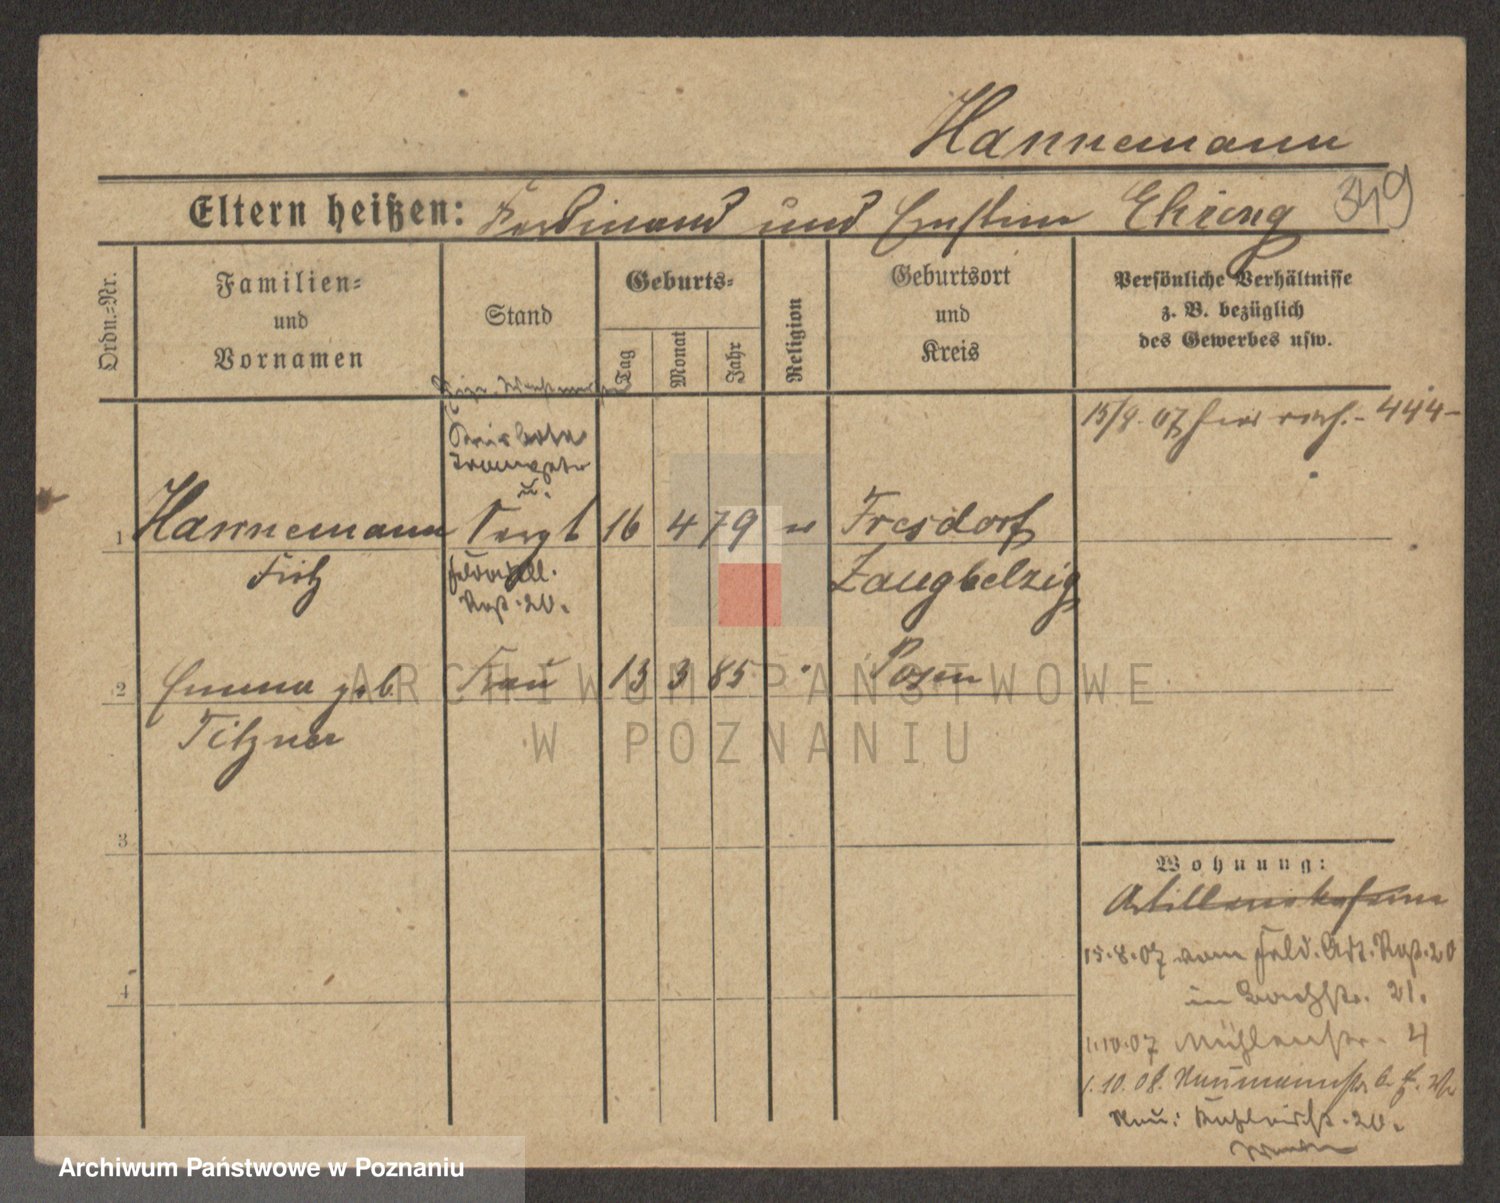 Hannemann
Eltern heißen: Ferdinand und Ernstine Ehrong 349
Ordn.=Nr.
Familien=
und
Vornamen
Stand
Geburts=
Tag
Monat
Jahr
Religion
Geburtsort
und
Kreis
Persönliche Verhältnisse
z. B. bezüglich
des Gewerbes usw.
15/8. 07 444
Trompeter
u.
1 Hannemann Sergt 16 4 79 Fresdorf
Fritz
Rgt. 20.
Zaugbelzig
2 Emma geb. Frau 13 3 85 Posen
Titzner
3
4
Wohnung:
15.8.07 vom Feld. Art. Rgt. 20
in 21.
1.10.07 Mühlenstr. 4
1.10.08. Naumannstr.
20.
ARCHIWUM PAŃSTWOWE
W POZNANIU
Archiwum Państwowe w Poznaniu